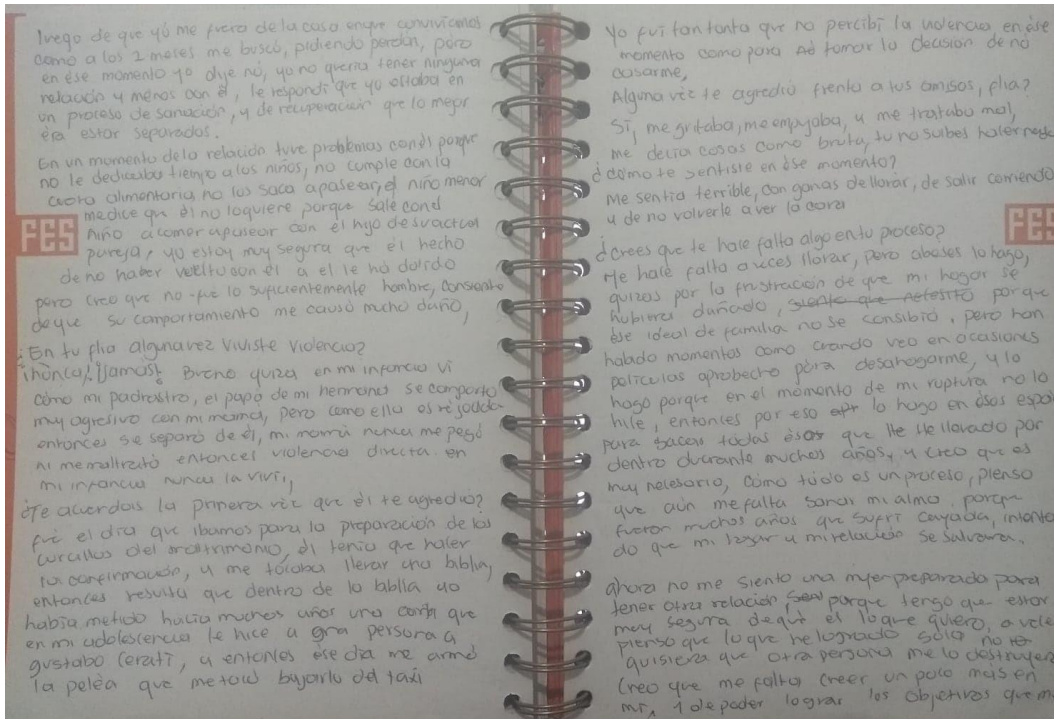 luego de que yó me fuera de la casa enque convivíamos
como a los 2 meses me buscó, pidiendo perdón, pero
en ése momento yo dije no, yo no quería tener ninguna
relación y menos con él, le respondí que yo estaba en
un proceso de sanación, y de recuperación que lo mejor
era estar separados.
En un momento dela relación tuve problemas conél porque
no le dedicaba tiempo alos niños, no cumple con la
cuota alimentaria, no los saca apasear, el niño menor
medice que él no loquiere porque sale conel
niño a comer apasear con él hijo desuactual
pareja, yo estoy muy segura que él hecho
de no haber vuelto con él a el le ha dolido
pero creo que no fue lo suficientemente hombre, consiente
deque su comportamiento me causó mucho daño,
¿En tu flia algunavez viviste violencia?
¡nunca! ¡Jamás! Bueno quiza en mi infancia vi
cómo mi padrastro, el papá de mi hermano se comportó
muy agresivo con mi mamá, pero como ella es rejodida
entonces se separó de él, mi mamá nunca me pegó
ni memaltrató entonces violencia directa en
mi infancia nunca la viví,
¿Te acuerdas la primera vez que él te agredió?
fué el dia que ibamos para la preparación de los
cursillos del matrimonio, él tenía que hacer
la confirmación, y me tocaba llevar una biblia,
entonces resulta que dentro de la biblia yo
había metido hacía muchos años una carta que
en mi adolescencia le hice a gran persona a
gustabo Cerati, y entonces ése día me armó
la peléa que metocó bajarlo del taxi
FES
Yo fuí tan tonta que no percibí la violencia en ése
momento como para tomar la decisión de nó
casarme,
Alguna véz te agredió frente a tus amigos, flia?
Sí, me gritaba, me empujaba, y me trataba mal,
me decía cosas como bruta, tu no sabes hacer nada
¿cómo te sentiste en ése momento?
Me sentía terrible, con ganas dellorar, de salir corriendo
y de no volverle a ver la cara
¿crees que te hace falta algo entu proceso?
Me hace falta aveces llorar, pero abeses lo hago,
quizas por la frustración de que mi hogar se
hubiera dañado, porque
ése ideal de familia no se consibió, pero han
habido momentos como cuando veo en ocasiones
películas aprobecho para desahogarme, y lo
hago porque en el momento de mi ruptura no lo
hice, entonces por eso lo hago en ésos espa
para sacar todas ésas que He llevado por
dentro durante muchos años, y creo que es
muy necesario, cómo tódo es un proceso, pienso
que aún mefalta sanar mi alma, porque
fueron muchos años que sufrí cayada, intenta
do que mi hogar y mirelación se salvara.
ahora no me siento una mujer preparada para
tener otra relación, porque tengo que estar
muy segura dequé es loque quiero, a vece
pienso que loque he logrado sola no
quisiera que otra persona me lo destruyera
Creo que me falta creer un poco más en
mi, y de poder lograr los objetivos que m
FES